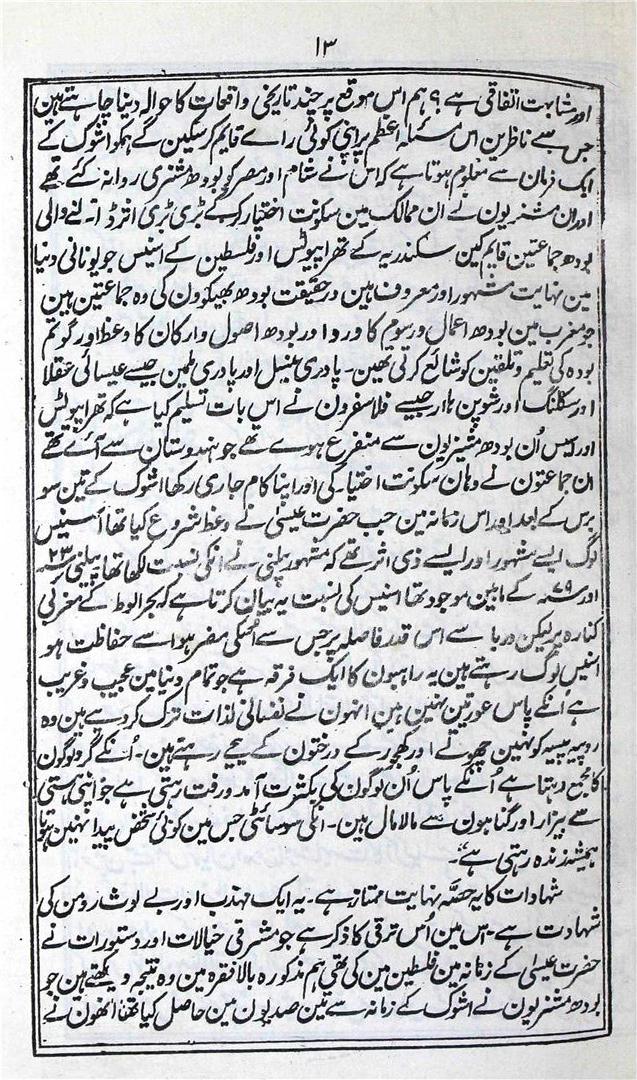 ۱۳
اور مشابہت اتفاقی ہے؟ ہم اس موقع پر چند تاریخی واقعات کا حوالہ دینا چاہتے ہین
جس سے ناظرین اس مسئلہ اعظم پر اپنی کوئی راے قایم کر سکین گے ہمکو اشوک کے
ایک فرمان سے معلوم ہوتا ہے کہ اس نے شام اور مصر کو بودھ مشنری روانہ کئے تھے
اور ان مشنریون نے ان ممالک مین سکونت اختیار کر کے بڑی بڑی اثر ڈالنے والی
بودھ جماعتین قایم کین سکندریہ کے تھراپیوٹس اور فلسطین کے اسنیس جو یونانی دنیا
مین نہایت مشہور اور معروف ہین درحقیقت بودھ بھیکوون کی وہ جماعتین ہین
جو مغرب مین بودھ اعمال و رسوم کا ورد اور بودھ اصول و ارکان کا وعظ اور گوتم
بودہ کی تعلیم و تلقین کو شائع کرتی تھین۔ پادری مینسل اور پادری ملمین جیسے عیسائی عقلا
اور سکلنگ اور شوپن ہاار جیسے فلاسفرون نے اس بات تسلیم کیا ہے کہ تھراپیوٹس
اور اسنیس اُن بودھ مشنریون سے متفرع ہوے تھے جو ہندوستان سے آئے تھے
ان جماعتون نے وہان سکونت اختیار کی اور اپنا کام جاری رکھا اشوک کے تین سو
برس کے بعد اور اس زمانہ مین جب حضرت عیسیٰ نے وعظ شروع کیا تھا اسنیس
لوگ ایسے مشہور اور ایسے ذی اثر تھے کہ مشہور پلنی نے انکی نسبت لکھا تھا پلینی ۲۳سنہ
اور ۷۹سنہ کے مابین موجود تھا اسنیس کی نسبت یہ بیان کرتا ہے کہ بحرالوط کے مغربی
کنارہ پر لیکن دریا سے اس قدر فاصلہ پر جس سے اُسکی مضر ہوا سے حفاظت ہو
اسنیس لوگ رہتے ہین یہ راہبون کا ایک فرقہ ہے جو تمام دنیا مین عجیب و غریب
ہے اُنکے پاس عورتین نہین ہین انہون نے نفسانی لذات ترک کر دے ہین وہ
روپیہ پیسہ کو نہین چھوتے اور کھجور کے درختون کے نیچے رہتے ہین۔ اُنکے گرد لوگون
کا مجمع رہتا ہے اُنکے پاس اُن لوگون کی بکثرت آمد ورفت رہتی ہے جو اپنی ہستی
سے بیزار اور گناہون سے مالا مال ہین۔ انکی سوسائٹی جس مین کوئی شخص پیدا نہین ہوتا
ہمیشہ زندہ رہتی ہے۔
شہادات کا یہ حصّہ نہایت ممتاز ہے۔ یہ ایک مہذب اور بے لوث رومن کی
شہادت ہے۔ اس مین اُس ترقی کا ذکر ہے جو مشرقی خیالات اور دستورات نے
حضرت عیسیٰ کے زمانہ مین فلسطین مین کی تھی ہم مذکورہ بالا فقرہ مین وہ نتیجہ دیکھتے ہین جو
بودھ مشنریون نے اشوک کے زمانہ سے تین صدیون مین حاصل کیا تھا انھون نے